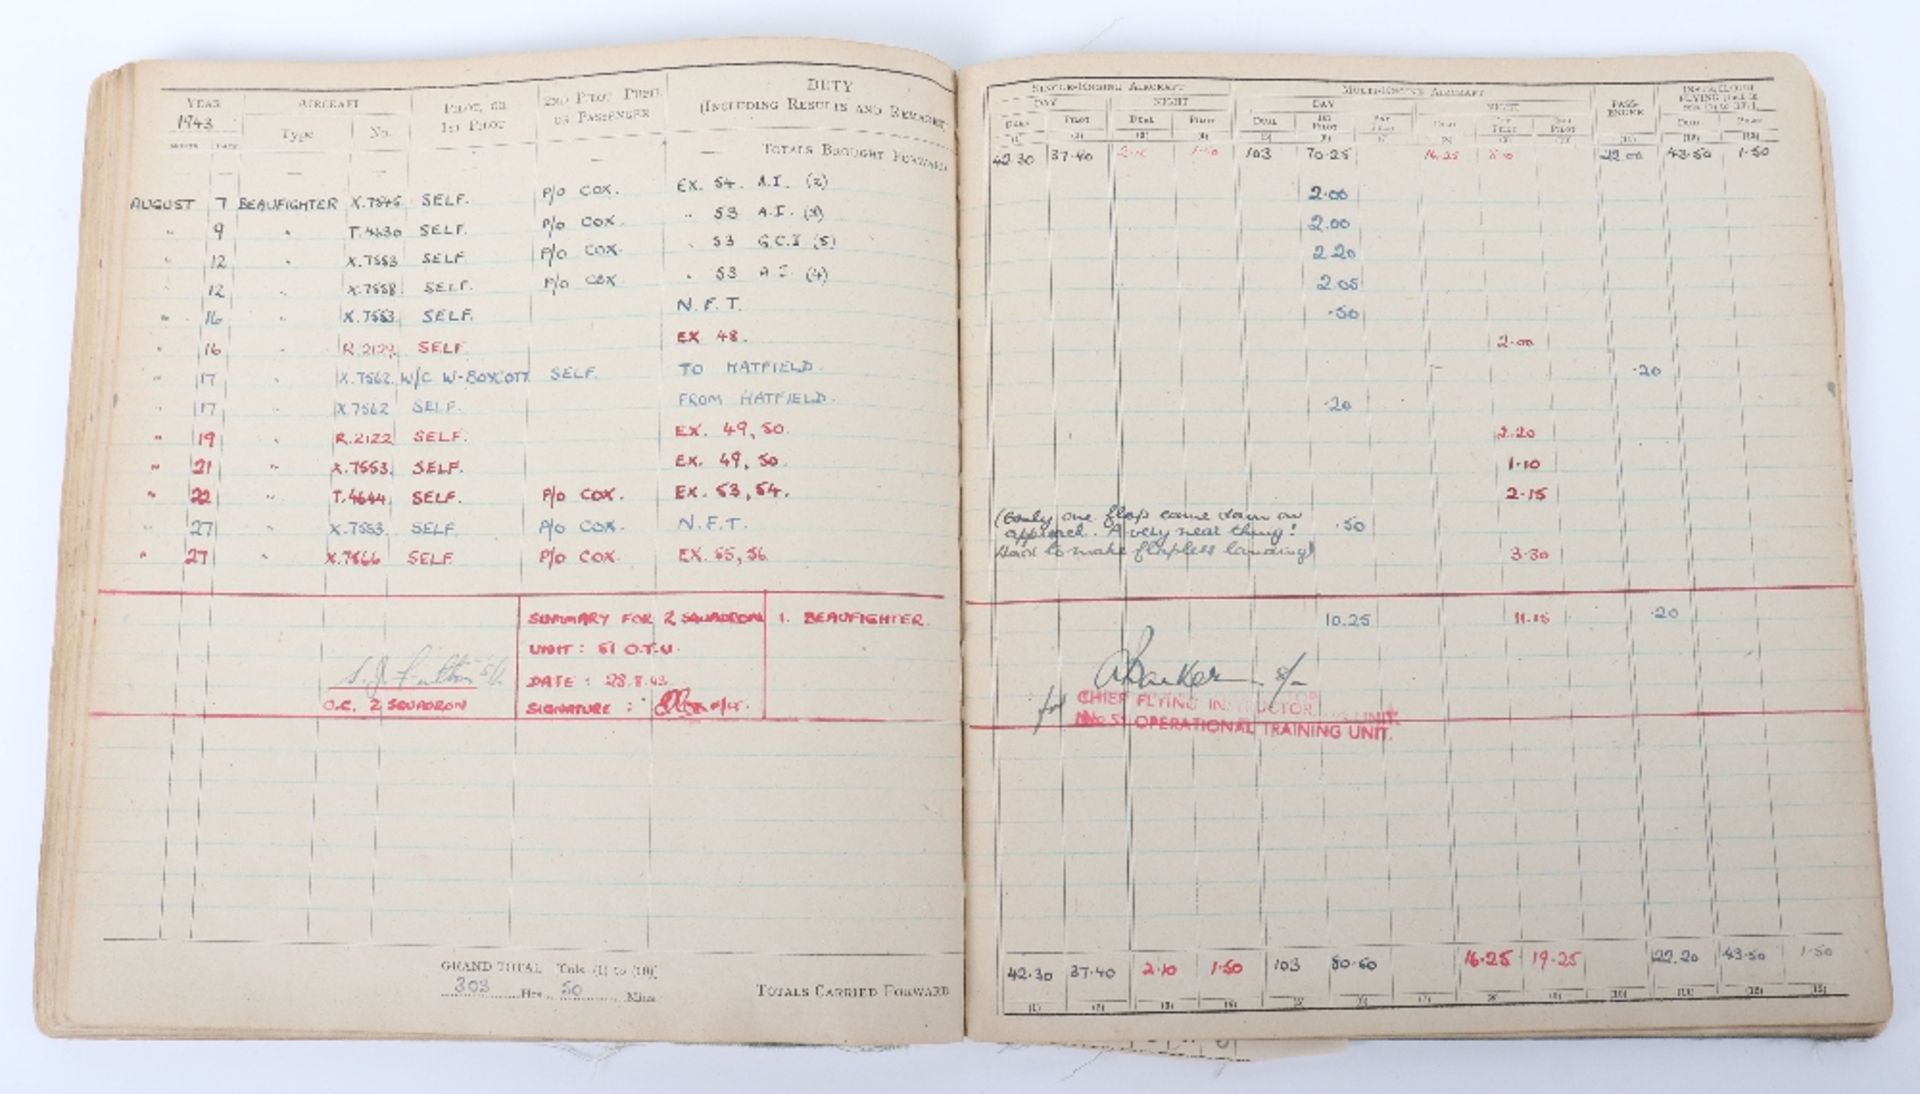 YEAR AIRCRAFT PILOT, OR 1ST PILOT 2ND PILOT PUPIL OR PASSENGER DUTY (INCLUDING RESULTS AND REMARKS)
1943 Type No.
MONTH DATE
TOTALS BROUGHT FORWARD
AUGUST 7 BEAUFIGHTER SELF. P/O COX. EX. 54. A.I. (2)
" 9 " T.4630 SELF. P/O COX. " 53 A.I. (3)
" 12 " X.7553 SELF P/O COX. " 53 G.C.I (5)
12 " X.7558 SELF. P/O COX " 53 A.I. (4)
" 16 " X.7553 SELF. N.F.T.
" 16 " SELF. EX 48.
" 17 " X.7562 W/C W-BOYCOTT SELF. TO HATFIELD.
" 17 " X.7562 SELF. FROM HATFIELD.
" 19 " R.2122 SELF. EX. 49, 50.
" 21 " X.7553. SELF. EX. 49, 50.
" 22 " T.4644 SELF. P/O COX. EX. 53, 54.
" 27 " X.7553. SELF. P/O COX. N.F.T.
" 27 " X.7566 SELF P/O COX. EX. 55, 56
SUMMARY FOR 2 SQUADRON 1. BEAUFIGHTER.
UNIT: 51 O.T.U.
DATE: 28.8.43.
SIGNATURE:
O.C. 2 SQUADRON
GRAND TOTAL [Cols. (1) to (10)]
303 Hrs. 50 Mins
TOTALS CARRIED FORWARD
SINGLE-ENGINE AIRCRAFT MULTI-ENGINE AIRCRAFT PASSENGER
DAY NIGHT DAY NIGHT
DUAL PILOT DUAL PILOT DUAL 1ST PILOT 2ND PILOT DUAL 1ST PILOT 2ND PILOT DUAL PILOT
(1) (2) (3) (4) (5) (6) (7) (8) (9) (10) (11) (12) (13)
42.30 37.40 2.10 1.50 103 70.25 16.25 8.10 22.00 43.50 1.50
2.00
2.00
2.20
2.05
.50
2.00
.20
.20
2.20
1.10
2.15
(Only one flap came down on
approach. A very near thing! .50
Had to make flapless landing) 3.30
10.25 11.15 .20
for CHIEF FLYING INSTRUCTOR,
No. 51 OPERATIONAL TRAINING UNIT.
42.30 37.40 2.10 1.50 103 80.50 16.25 19.25 22.20 43.50 1.50